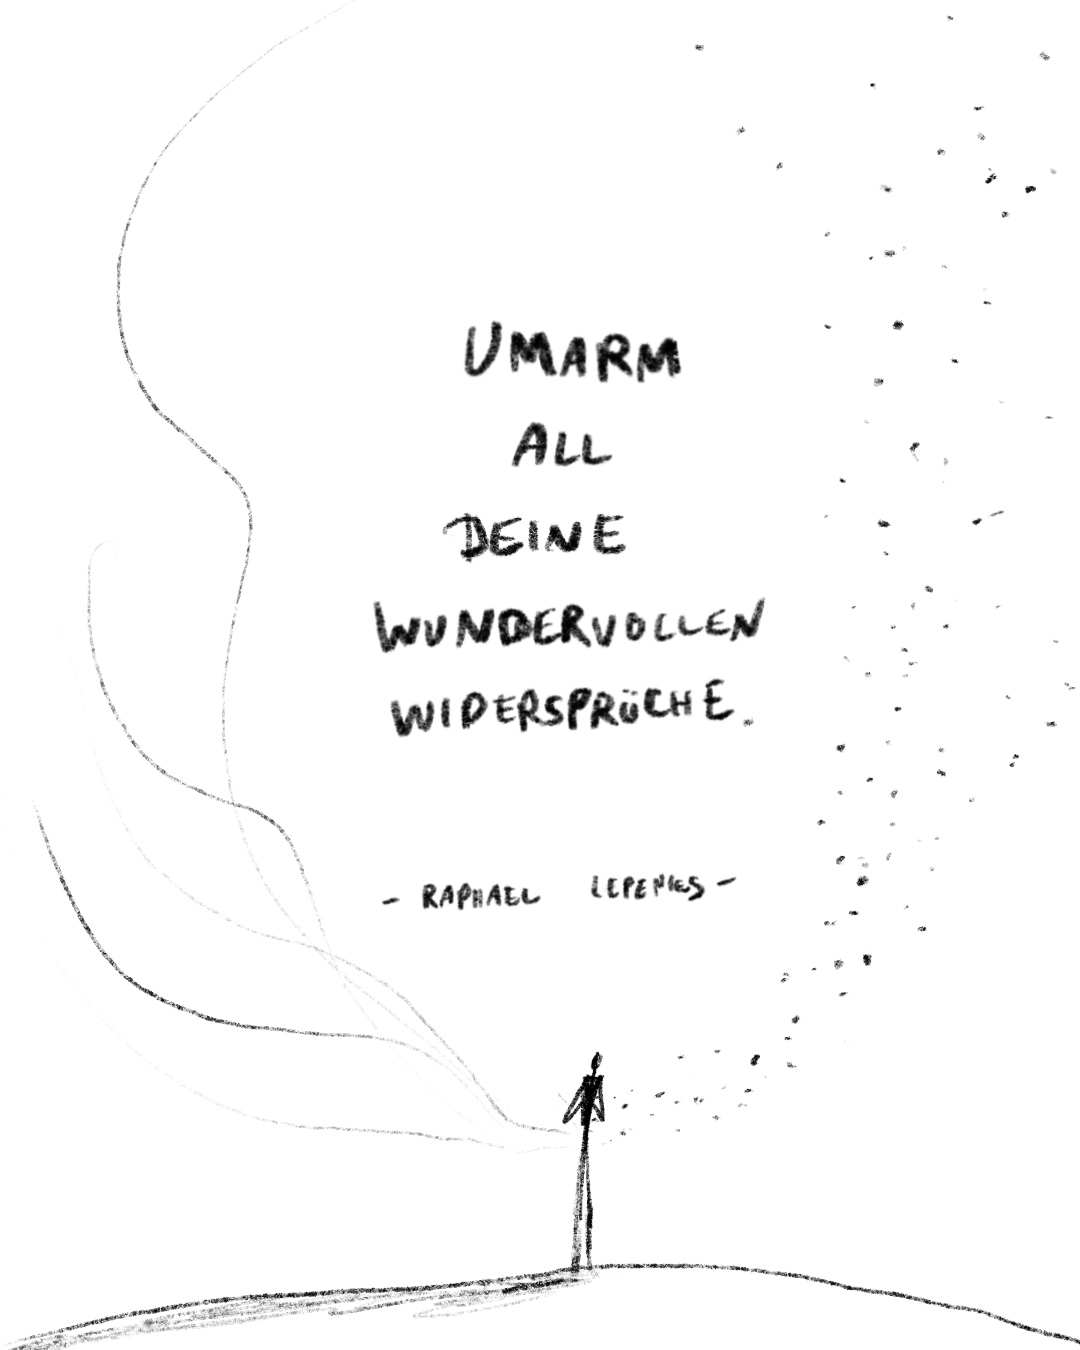 UMARM
ALL
DEINE
WUNDERVOLLEN
WIDERSPRÜCHE.
- RAPHAEL LEPENIES -